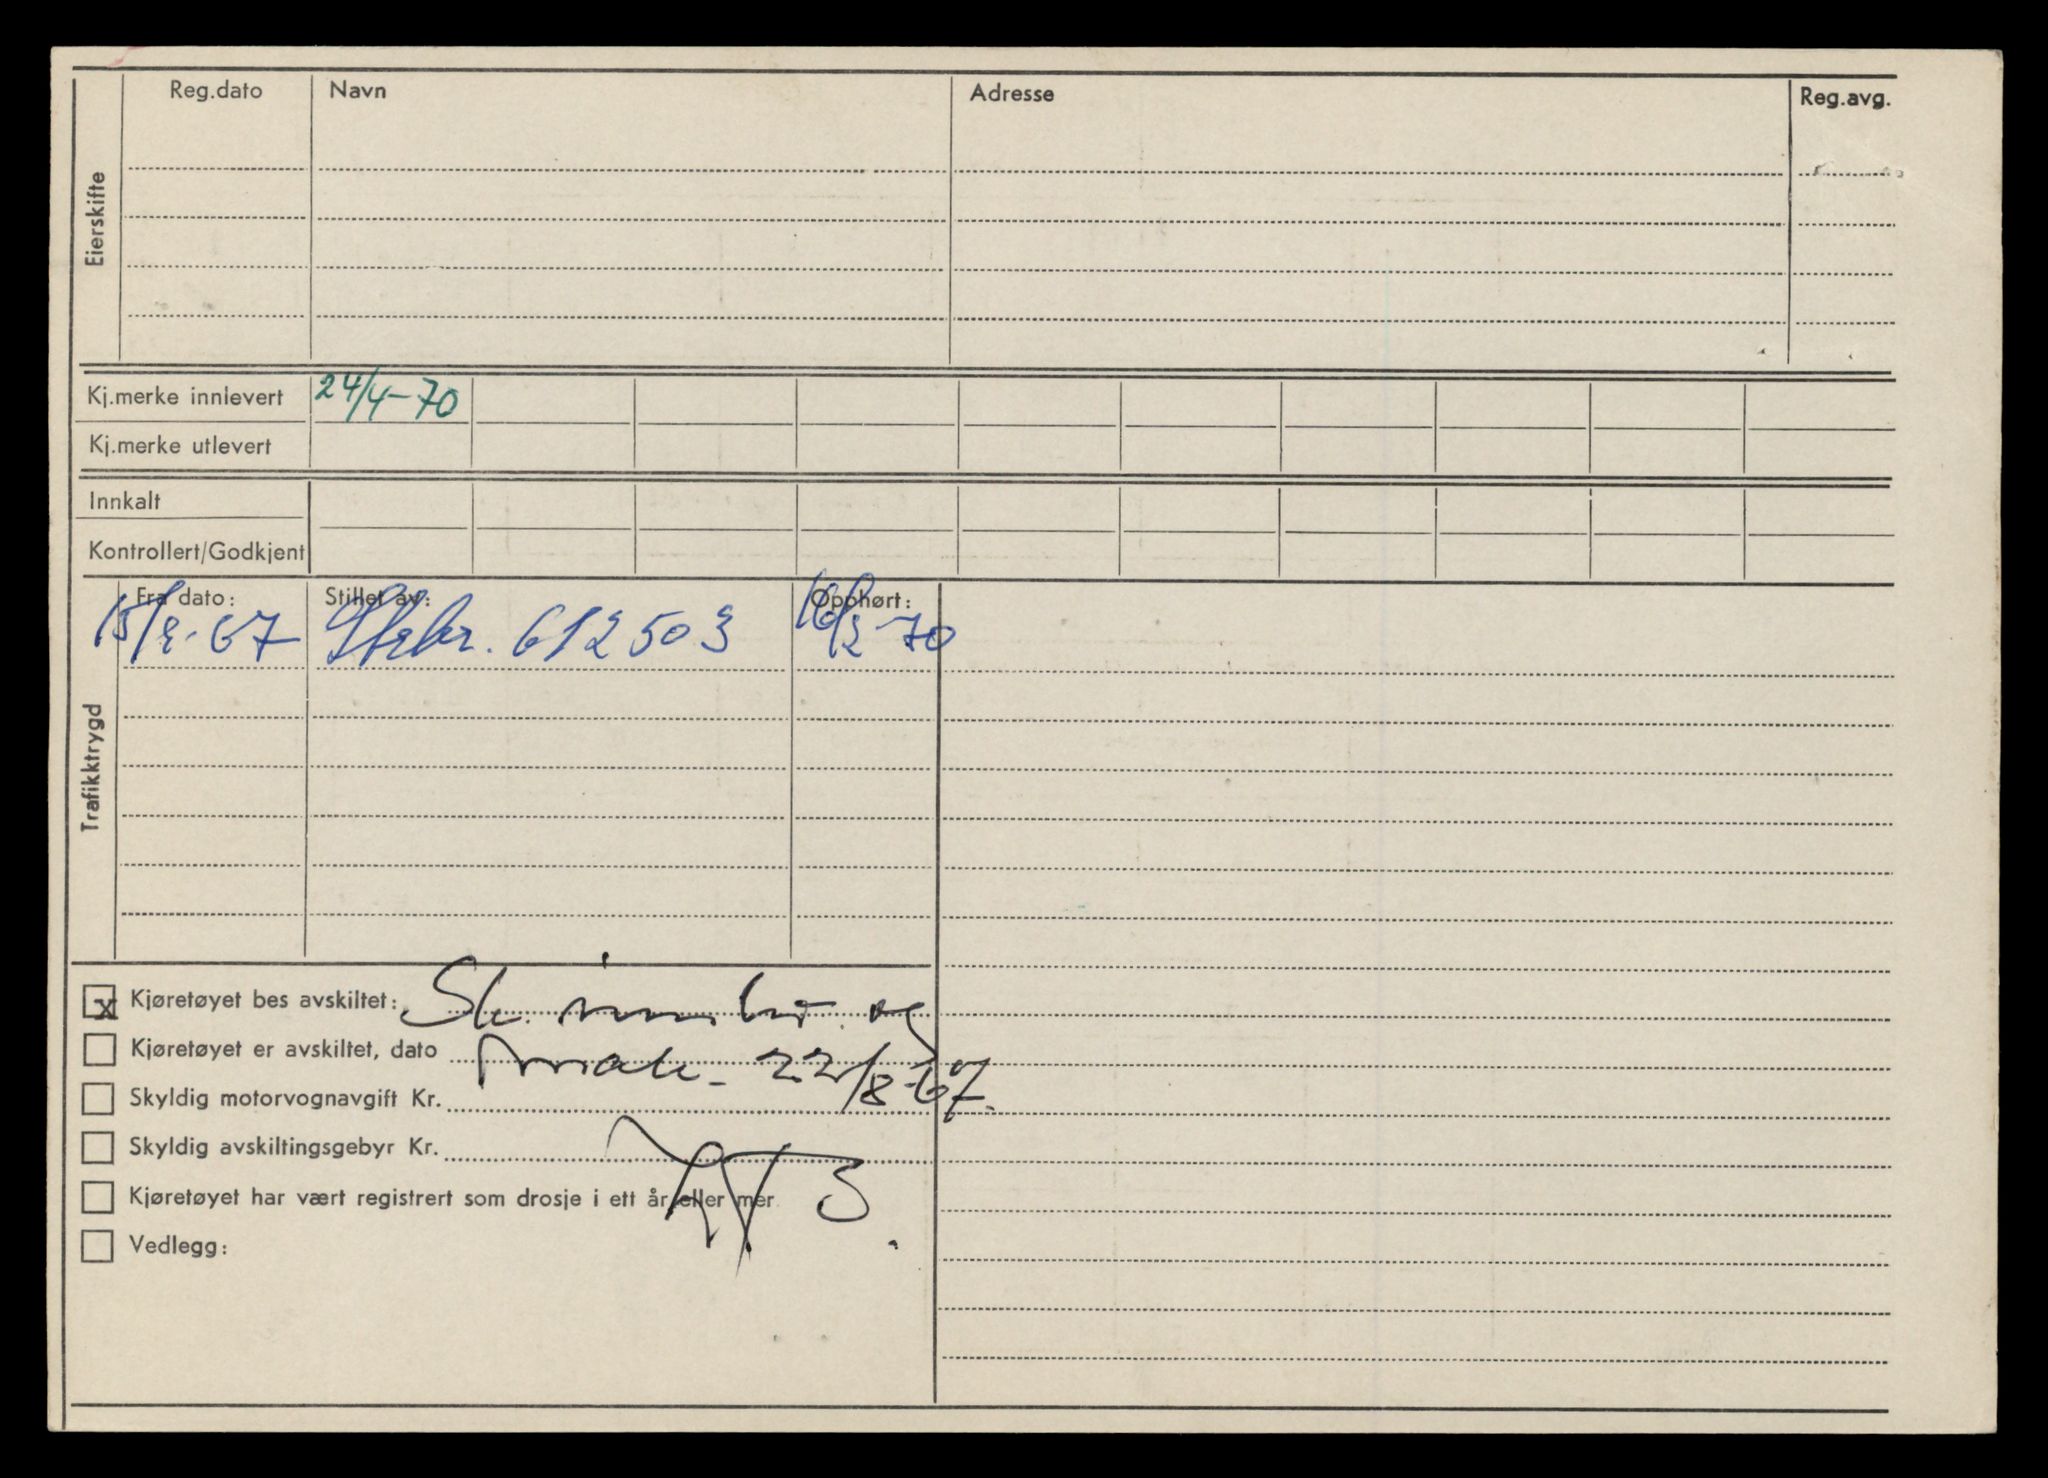 Reg.dato Navn Adresse Reg.avg.
Eierskifte
Kj.merke innlevert 24/4-70
Kj.merke utlevert
Innkalt
Kontrollert/Godkjent
Fra dato: Stillet av: Opphørt:
612503
Trafikktrygd
x Kjøretøyet bes avskiltet: og
Kjøretøyet er avskiltet, dato 22/8-67.
Skyldig motorvognavgift Kr.
Skyldig avskiltingsgebyr Kr.
Kjøretøyet har vært registrert som drosje i ett år eller mer
Vedlegg: